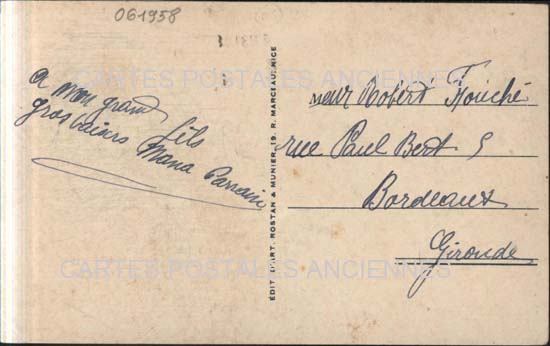 061958
CARTES POSTALES ANCIENNES
a mon grand fils
gros baisers Mana Parrain
ÉDIT. D'ART. ROSTAN & MUNIER, 19, R. MARCEAU, NICE
sieur Robert Fouché
rue Paul Bert 5
Bordeaux
Gironde
CARTES POSTALES ANCIENNES